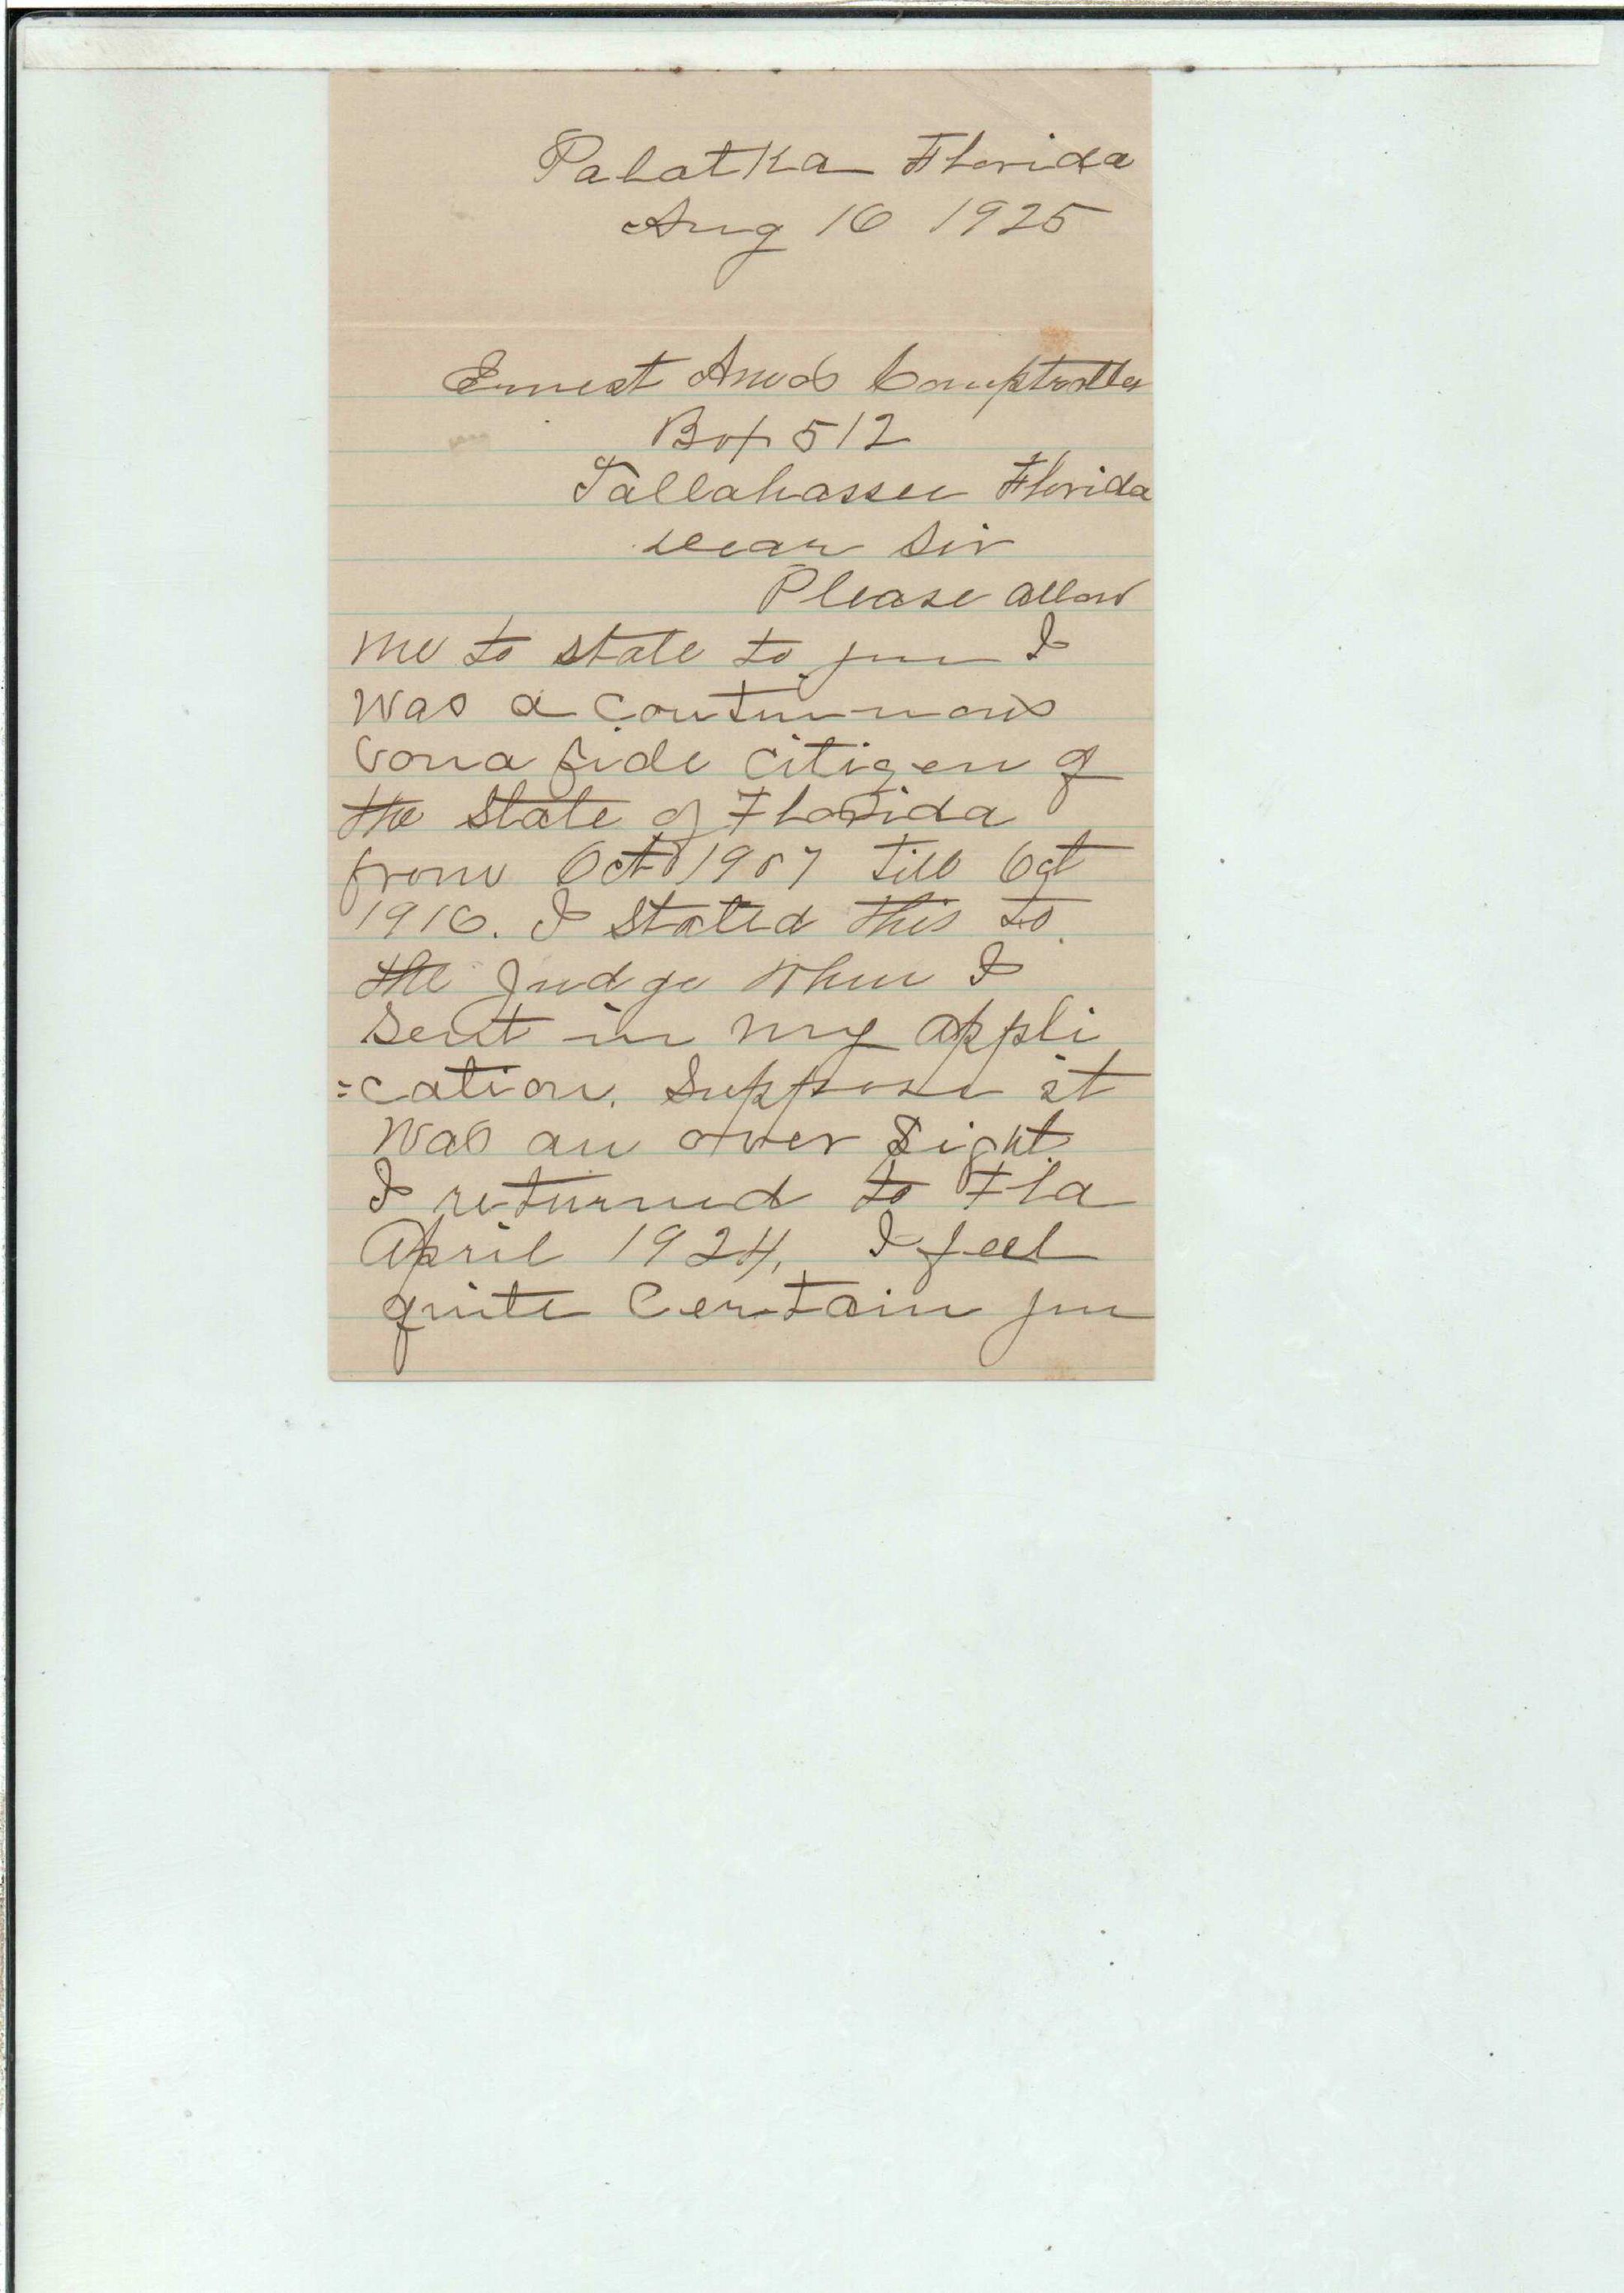 Palatka Florida
Aug 16 1925
Ernest Amos Comptroller
Box 512
Tallahassee Florida
Dear Sir
Please allow
me to state to you I
was a continuous
bona fide citizen of
the State of Florida
from Oct 1907 till Oct
1916. I stated this to
the Judge when I
sent in my appli
=cation. Suppose it
was an over sight
I returned to Fla
April 1924, I feel
quite certain you